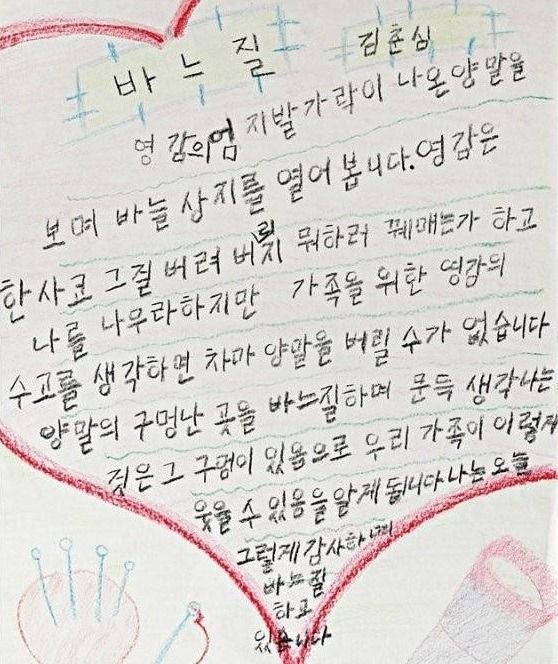 바느질 김춘심
영감의 엄지발가락이 나온 양말을
보며 바늘 상지를 열어 봅니다. 영감은
한사코 그질 버려 버리지 뭐하러 꿰매는가 하고
나를 나우라하지만 가족을 위한 영감의
수고를 생각하면 차마 양말을 버릴 수가 없습니다
양말의 구멍난 곳을 바느질하며 문득 생각나는
것은 그 구멍이 있음으로 우리 가족이 이렇게
웃을 수 있음을 알게 됩니다 나는 오늘
그렇게 감사하며
바느질
하고
있습니다